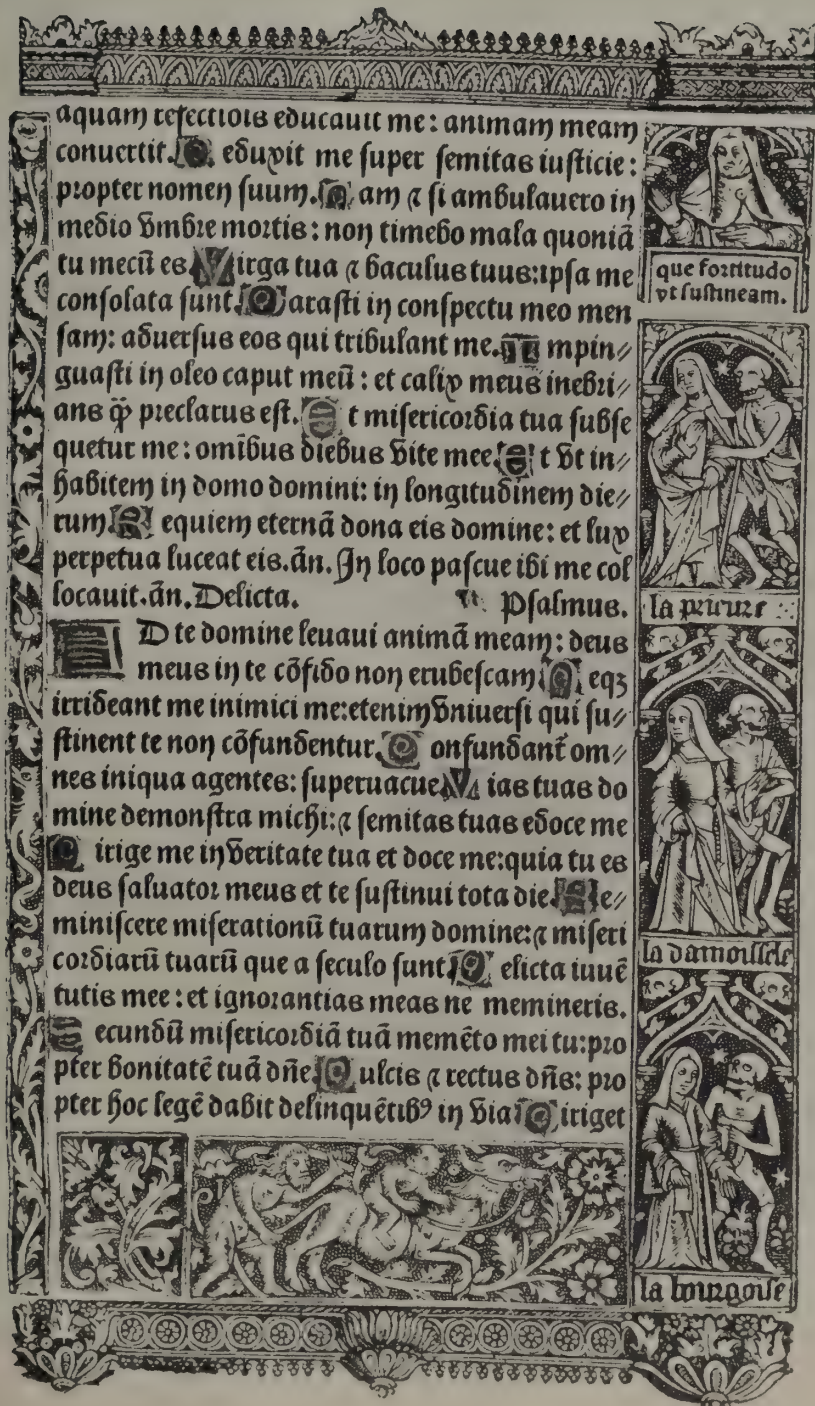 aquam refectiois educauit me: animam meam
conuertit. D. eduxit me super semitas iusticie:
propter nomen suum. N am ⁊ si ambulauero in
medio vmbre mortis: non timebo mala quoniã
tu mecũ es V irga tua ⁊ baculus tuus: ipsa me
consolata sunt. P arasti in conspectu meo men
sam: aduersus eos qui tribulant me. I mpin⸗
guasti in oleo caput meũ: et calix meus inebri⸗
ans q̃ꝫ preclarus est. E t misericordia tua subse
quetur me: omĩbus diebus vite mee. E t vt in⸗
habitem in domo domini: in longitudinem die⸗
rum. R equiem eternã dona eis domine: et lux
perpetua luceat eis. ãn. In loco pascue ibi me col
locauit. ãn. Delicta. Psalmus.
A D te domine leuaui animã meam: deus
meus in te cõfido non erubescam N eqꝫ
irrideant me inimici me: etenim vniuersi qui su⸗
stinent te non cõfundentur. C onfundant̃ om⸗
nes iniqua agentes: superuacue. V ias tuas do
mine demonstra michi: ⁊ semitas tuas edoce me
D irige me in veritate tua et doce me: quia tu es
deus saluator meus et te sustinui tota die. R e⸗
miniscere miserationũ tuarum domine: ⁊ miseri
cordiarũ tuarũ que a seculo sunt. D elicta iuuẽ
tutis mee: et ignorantias meas ne memineris.
S ecundũ misericordiã tuã memẽto mei tu: pro
pter bonitatẽ tuã dñe. D ulcis ⁊ rectus dñs: pro
pter hoc legẽ dabit delinquẽtibꝰ in via D iriget
que fortitudo
vt sustineam.
la prieure
la damoiselle
la bourgoise